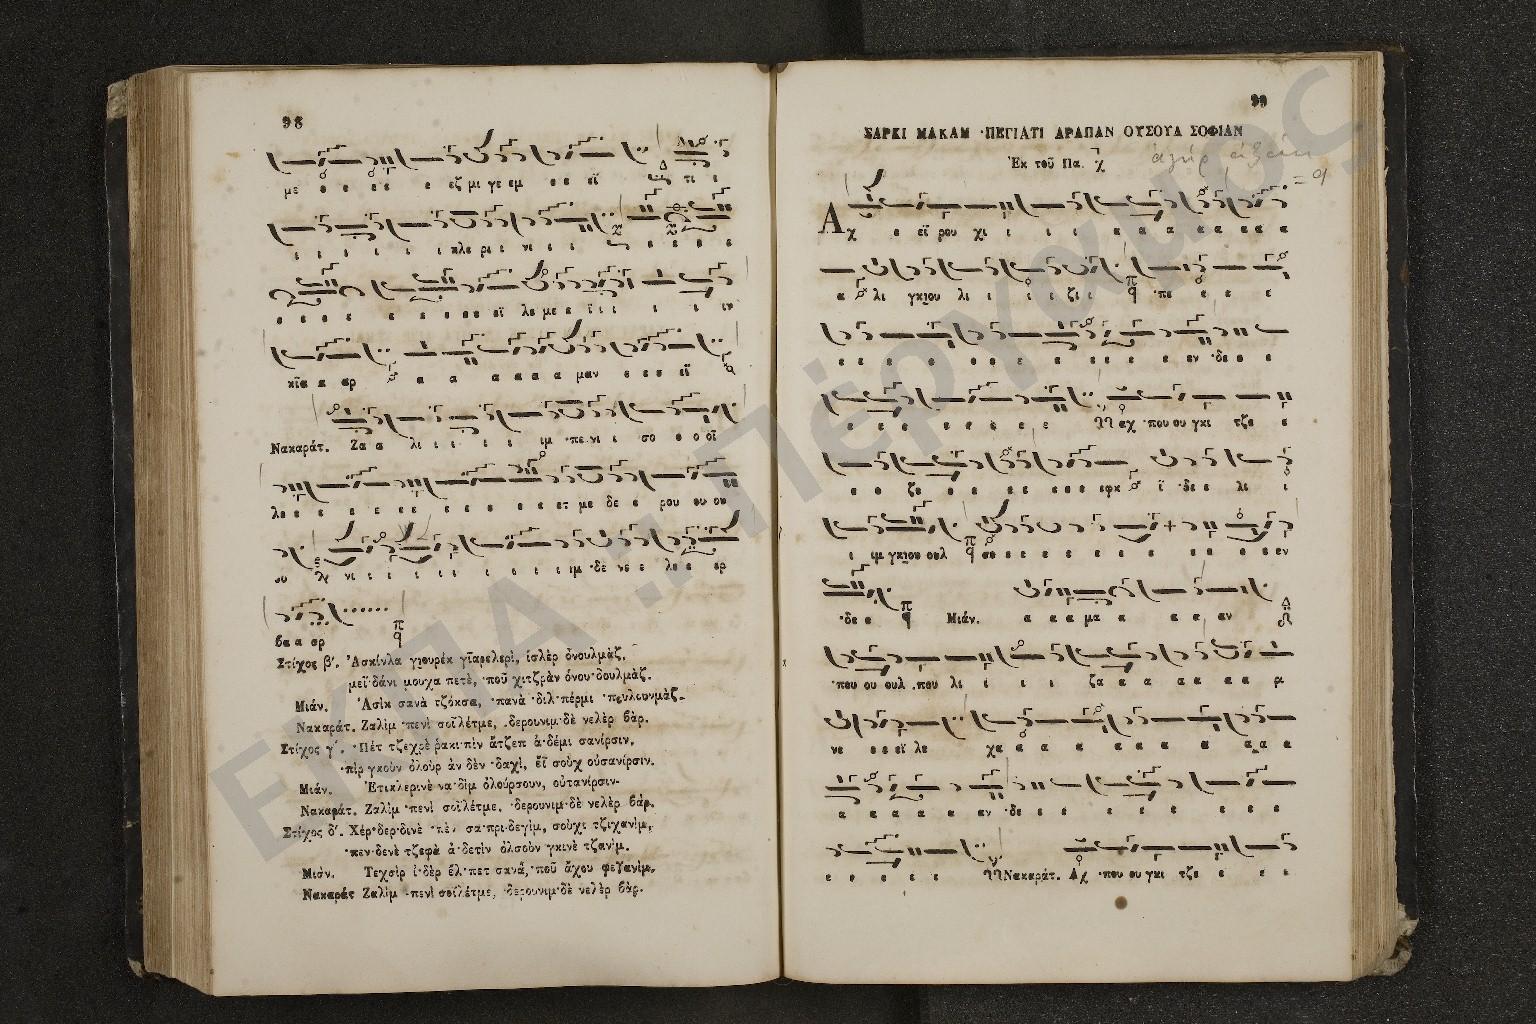 98
με ε ε ε ε ε εζ μι γε εμ ε ε εϊ τι ι
ι ι ι ι ι ι κλε ρι ι νι ι ι ε ε ε ε
ε ε ε ε ε ε ε ε ε εϊ λε με ε ϊ ι ι ι ι ιν
κῖα α αρ α α α α α α μαν ε ε ε εϊ
Νακαράτ. Ζα α λι ι ι ι ι ιμ ·πε νι ι σο ο ο οϊ
λε ε ε ε ε ε ε ε ε ε ε ετ με δε ε ρου ου ου
νι ι ι ι ι ι ι ι ι ι ιμ ·δε νε ε λε ε ερ
βα α αρ
Στίχος β΄. Ἀσκίνλα γιουρέκ γῖαρελερὶ, ἰσλὲρ ὀνουλμὰζ,
μεϊ·δάνι μουχα πετὲ, ·ποῦ χιτζρὰν ὀνου·δουλμὰζ.
Μιάν. Ἀσὶκ σανὰ τζόκσα, ·πανὰ ·διλ·πέρμι
Νακαράτ. Ζαλὶμ ·πενὶ σοϊλέτμε, ·δερουνιμ·δὲ νελὲρ βὰρ.
Στίχος γ΄. ·Πέτ τζεχρὲ ῥακι·πὶν ἄτζεπ ἀ·δέμι σανίρσιν,
·πὶρ γκοὺν ὀλοὺρ ἀν δὲν ·δαχὶ, ἔϊ σοὺχ οὐσανίρσιν.
Μιάν. Ἐτικλερινὲ να·δὶμ ὀλούρσουν, οὐτανίρσιν·
Νακαράτ. Ζαλὶμ ·πενὶ σοϊλέτμε, ·δερουνιμ·δὲ νελὲρ βάρ.
Στίχος δ΄. Χέρ·δερ·δινὲ σα·πρι·δεγὶμ, σοὺχι τζιχανὶμ,
·πεν·δενὲ τζεφὰ ἀ·δετὶν ὀλσοὺν γκινὲ τζανὶμ.
Μιάν. Τεχσὶρ ἰ·δὲρ ἐλ·πετ σανᾶ, ·ποῦ ἄχου φεγανὶμ.
Νακαράτ Ζαλὶμ ·πενὶ σοϊλέτμε, ·δερουνιμ·δὲ νελὲρ βὰρ.
99
ΣΑΡΚΙ ΜΑΚΑΜ ·ΠΕΓΙΑΤΙ ΑΡΑΠΑΝ ΟΥΣΟΥΛ ΣΟΦΙΑΝ
Ἐκ τοῦ Πα.
Αχ ε εϊ ρου χι ι ι ι α α α α α α α α
α λι γκιου λι ι ι ι ζι ι ·πε ε ε ε
ε ε ε ε ε ε ε ε ε ε ε ε ε εν ·δε ε ε
ε ε ε ε ε ε ε αχ ·που ου γκι τζε ε
ε ε ζε ε ε ε ε ε ε εφκ ϊ ·δε ε λι ι
ι ιμ γκιου ουλ σε ε ε ε ε ε ε ε ε ε ε εν
·δε ε Μιάν. α α α μα α α α αν
·που ου ουλ ·που λι ι ι ι ζα α α α α α α μ
νε ε ε εϊ λε χα α α α α α α α α α α α
α α α α α αν ·δε ε ε ε ε ε ε ε
ε ε ε ε ε Νακαράτ. Αχ ·που ου γκι τζε ε ε ε
ΕΚΠΑ : Πέργαμος